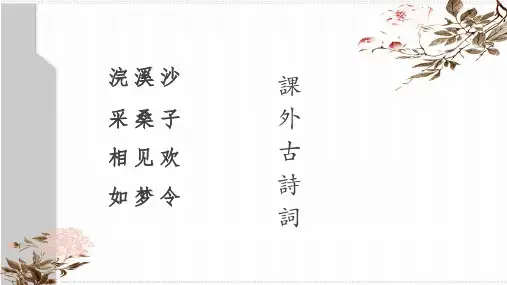 浣溪沙
采桑子
相见欢
如梦令
課外古詩詞